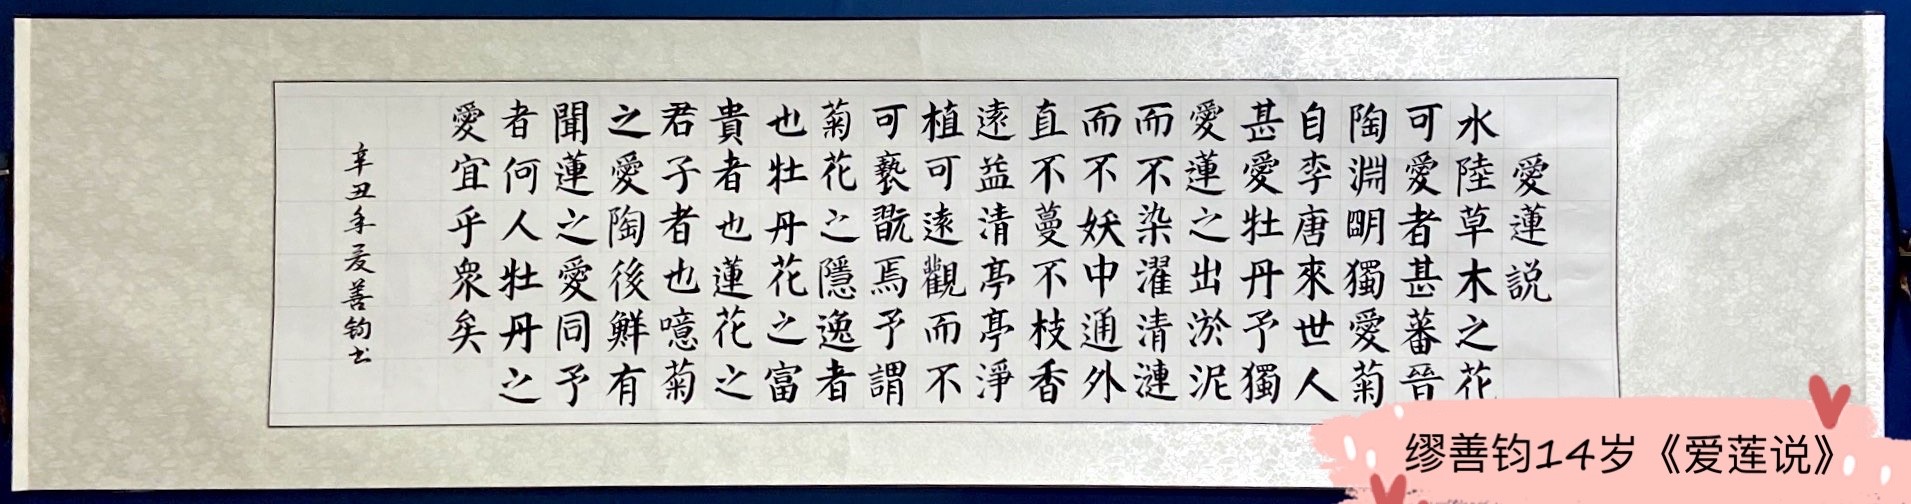 愛蓮説
水陸草木之花
可愛者甚蕃晉
陶淵明獨愛菊
自李唐來世人
甚愛牡丹予獨
愛蓮之出淤泥
而不染濯清漣
而不妖中通外
直不蔓不枝香
遠益清亭亭淨
植可遠觀而不
可褻翫焉予謂
菊花之隱逸者
也牡丹花之富
貴者也蓮花之
君子者也噫菊
之愛陶後鮮有
聞蓮之愛同予
者何人牡丹之
愛宜乎眾矣
辛丑年夏善钧书
缪善钧14岁《爱莲说》